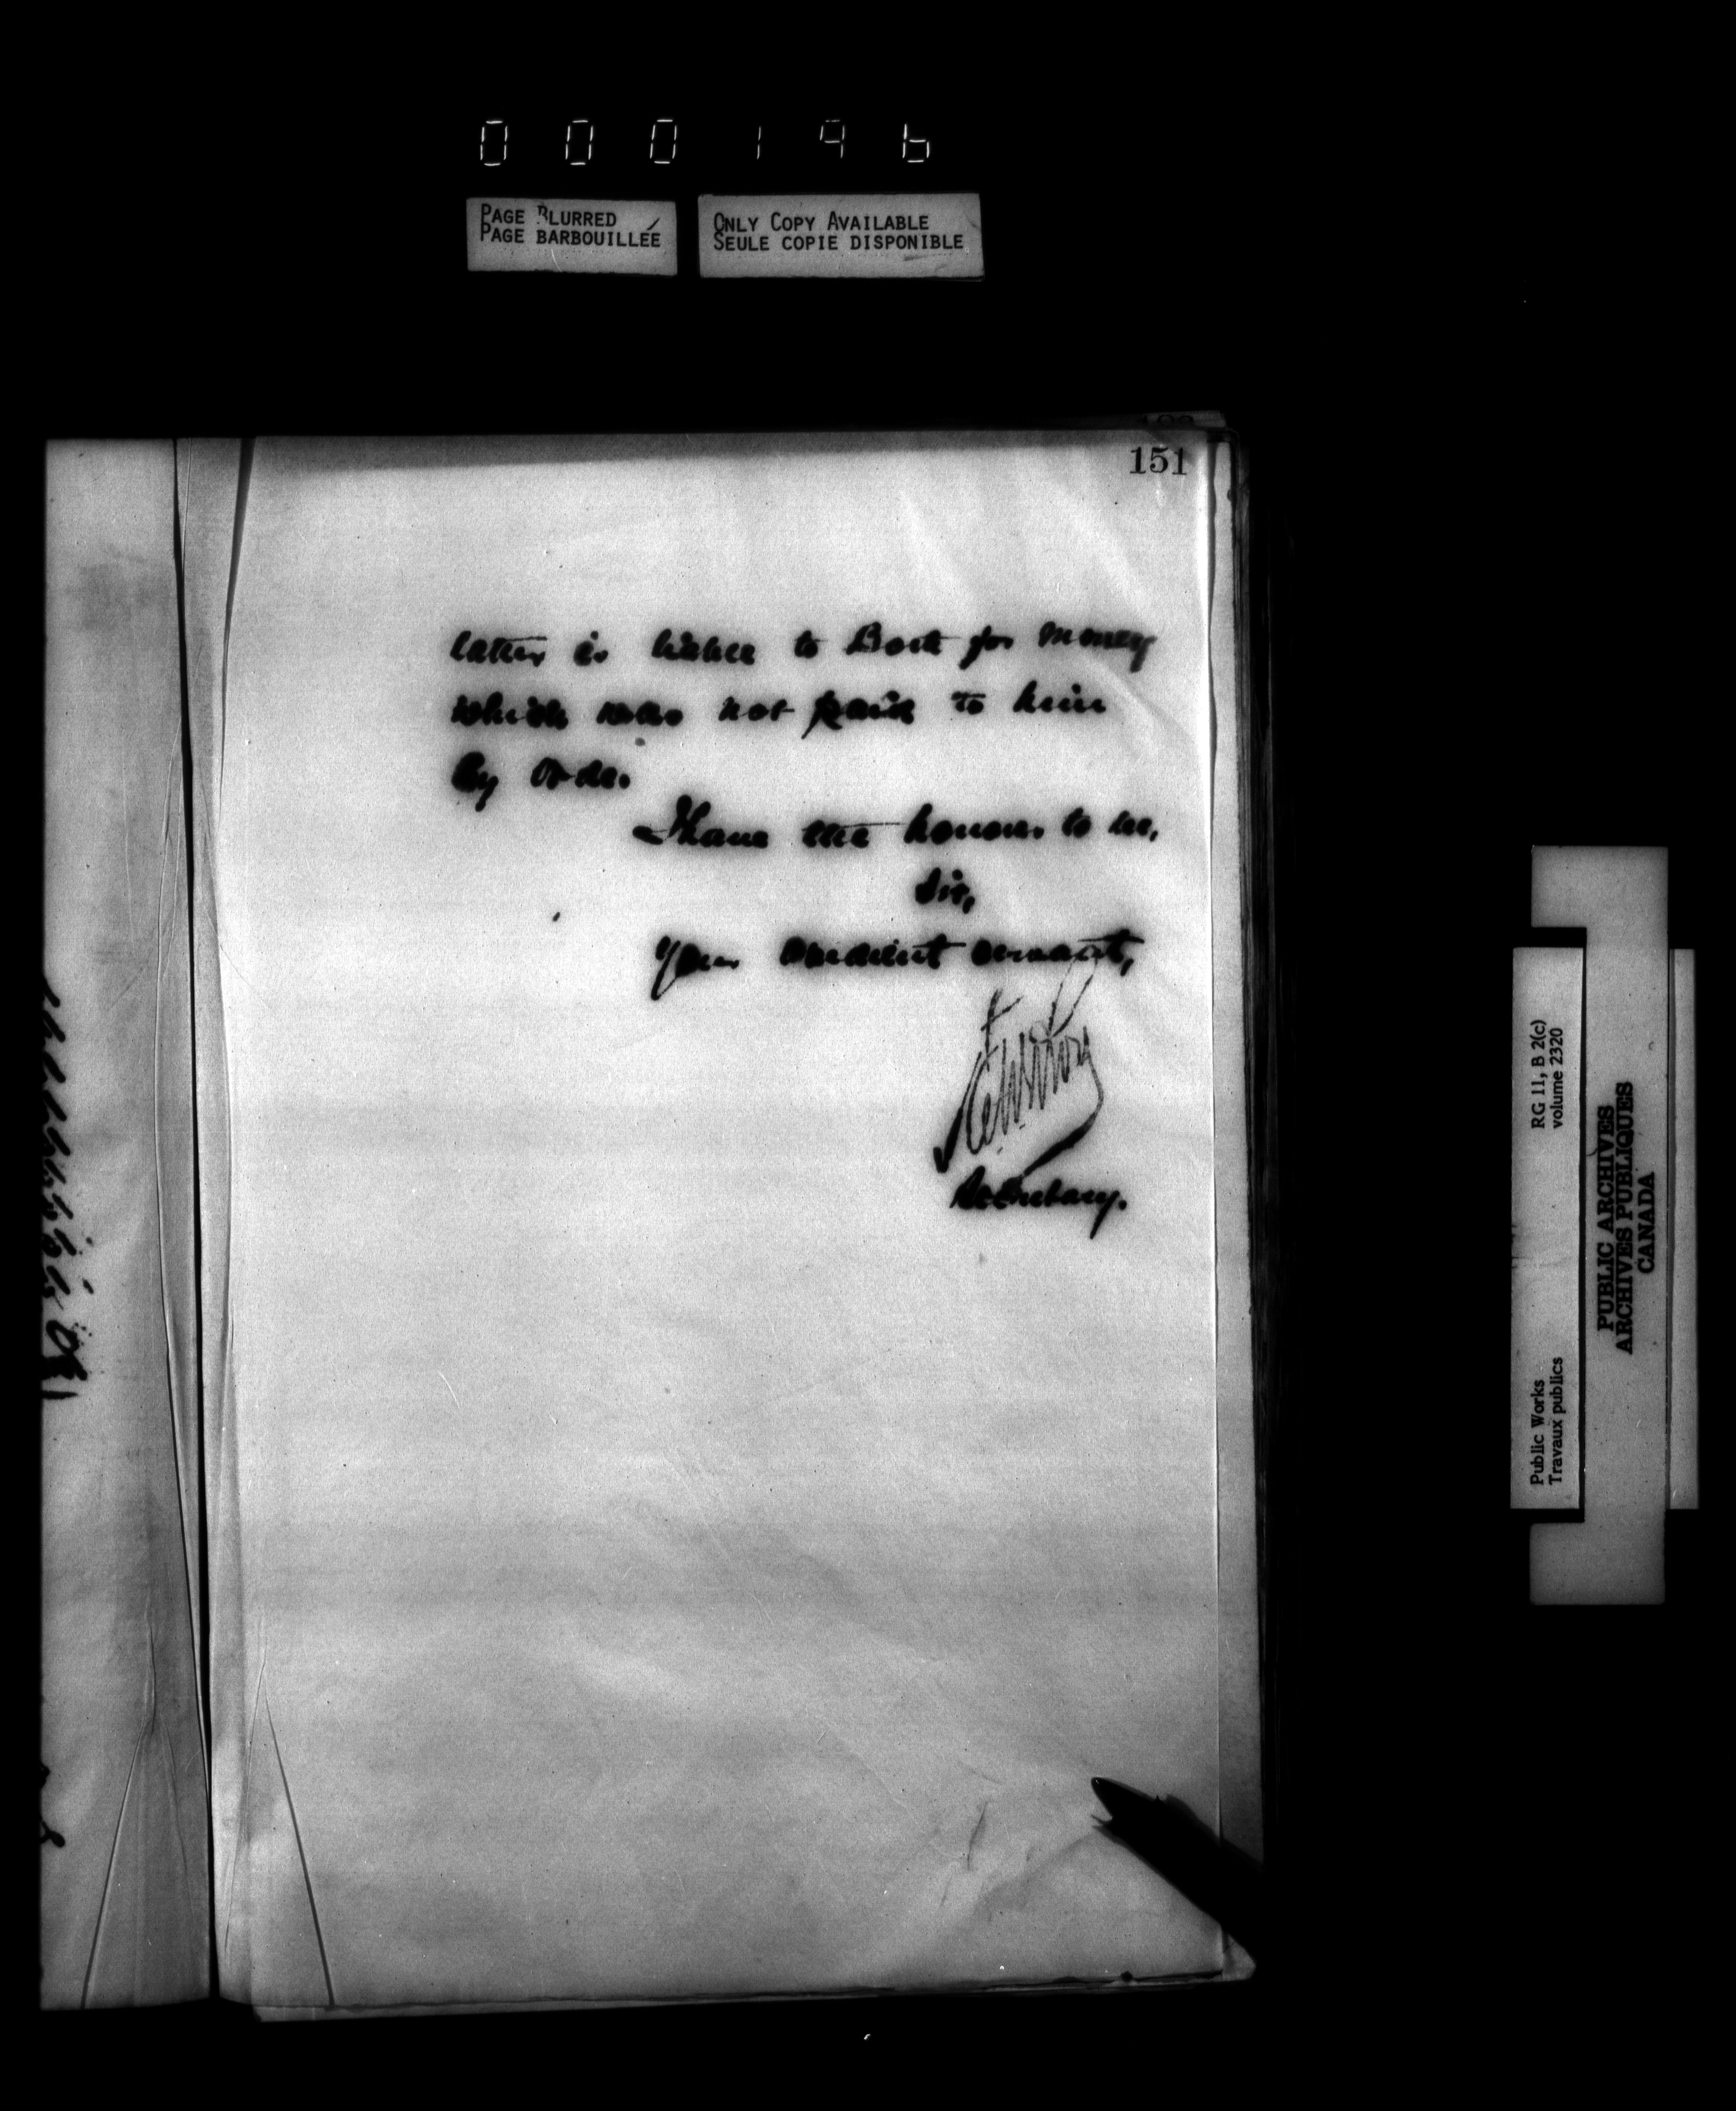 000196
PAGE BLURRED
PAGE BARBOUILLÉE
ONLY COPY AVAILABLE
SEULE COPIE DISPONIBLE
151
latter is liable to for money
which was not paid to him
by
I have the honour to be,
Sir,
Your obedient servant,
Secretary.
RG 11, B 2(c)
volume 2320
Public Works
Travaux publics
PUBLIC ARCHIVES
ARCHIVES PUBLIQUES
CANADA